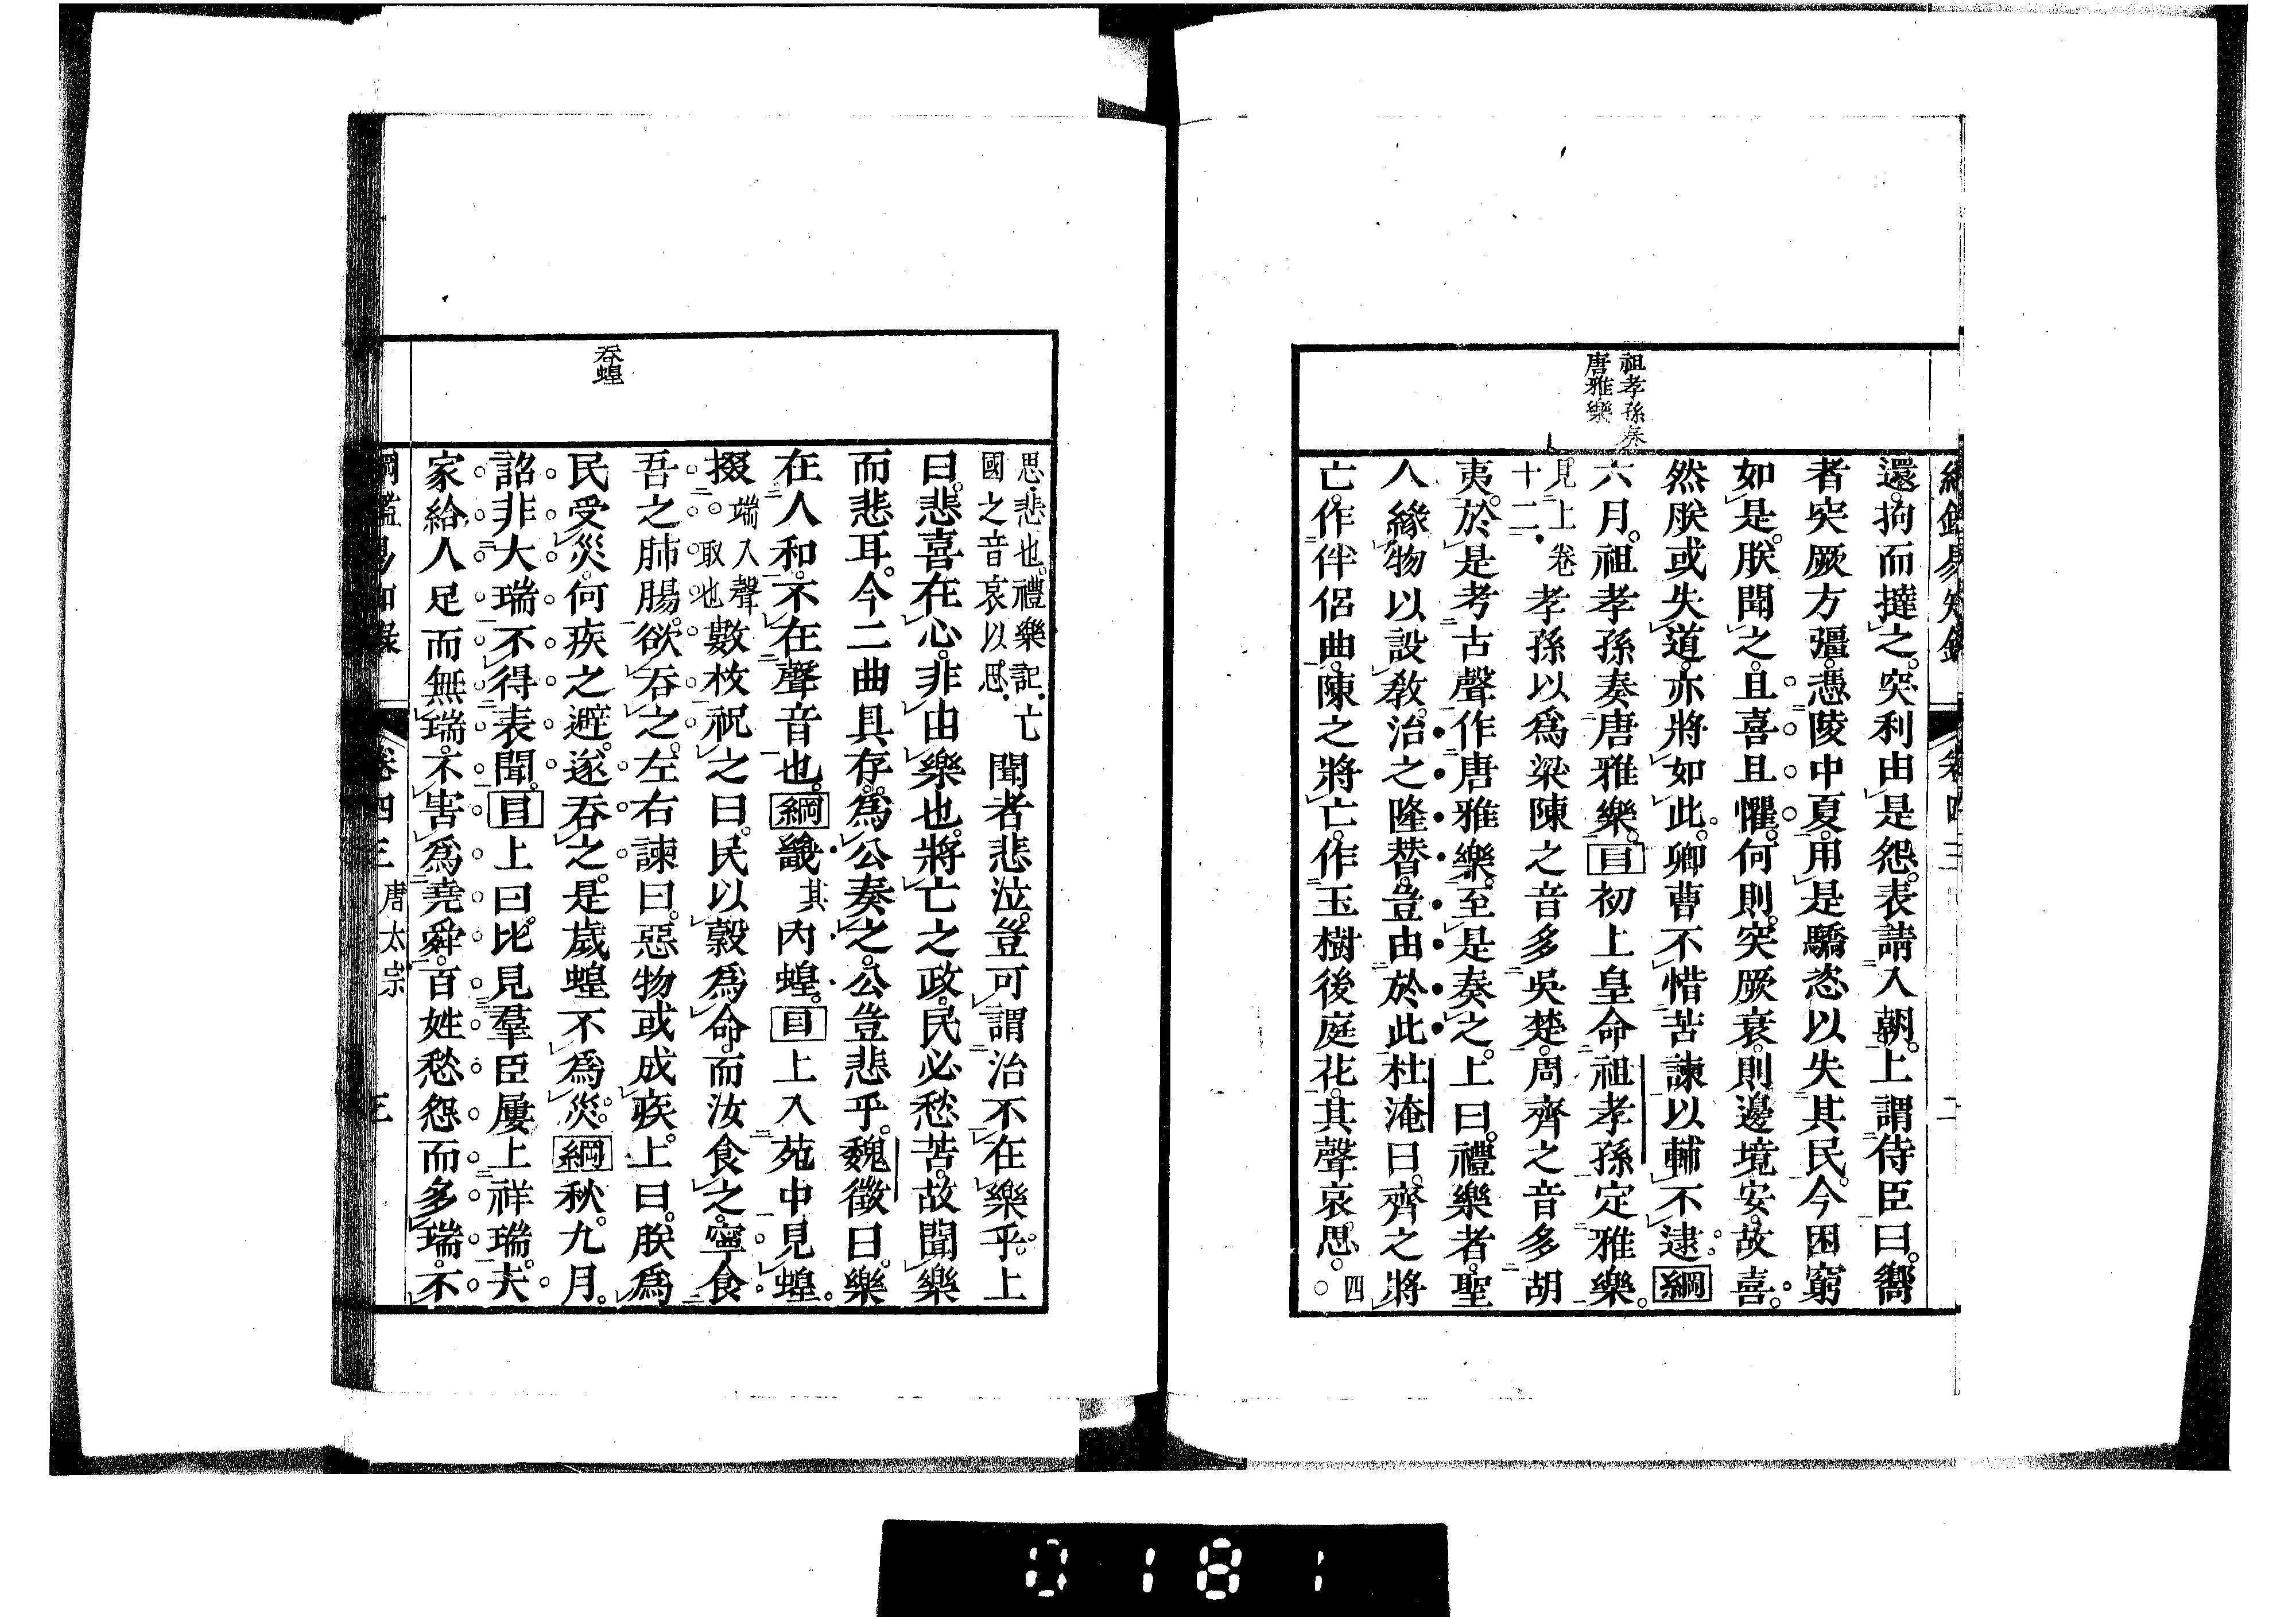 綱鑑易知錄 卷四三 二
祖孝孫奏
唐雅樂
還。拘而撻之。突利由是怨。表請入朝。上謂侍臣曰。嚮
者突厥方彊。憑陵中夏。用是驕恣以失其民。今困窮
如是。朕聞之。且喜且懼。何則。突厥衰。則邊境安。故喜。
然朕或失道。亦將如此。卿曹不惜苦諫以輔不逮。綱
六月。祖孝孫奏唐雅樂。目初上皇命祖孝孫定雅樂。
見上卷十二。孝孫以爲梁陳之音多吳楚。周齊之音多胡
夷。於是考古聲作唐雅樂。至是奏之。上曰。禮樂者。聖
人緣物以設教。治之隆替。豈由於此。杜淹曰。齊之將
亡。作伴侶曲。陳之將亡。作玉樹後庭花。其聲哀思。四
吞蝗
思。悲也。禮樂記。亡國之音哀以思。聞者悲泣。豈可謂治不在樂乎。上
曰。悲喜在心。非由樂也。將亡之政。民必愁苦。故聞樂
而悲耳。今二曲具存。爲公奏之。公豈悲乎。魏徵曰。樂
在人和。不在聲音也。綱畿其內蝗。目上入苑中見蝗。
掇端入聲。取也。數枚祝之曰。民以穀爲命。而汝食之。寧食
吾之肺腸。欲吞之。左右諫曰。惡物或成疾。上曰。朕爲
民受災。何疾之避。遂吞之。是歲蝗不爲災。綱秋。九月。
詔非大瑞不得表聞。目上曰。比見羣臣屢上祥瑞。夫
家給人足而無瑞。不害爲堯舜。百姓愁怨而多瑞。不
綱鑑易知錄 卷四三 唐太宗 三
0181